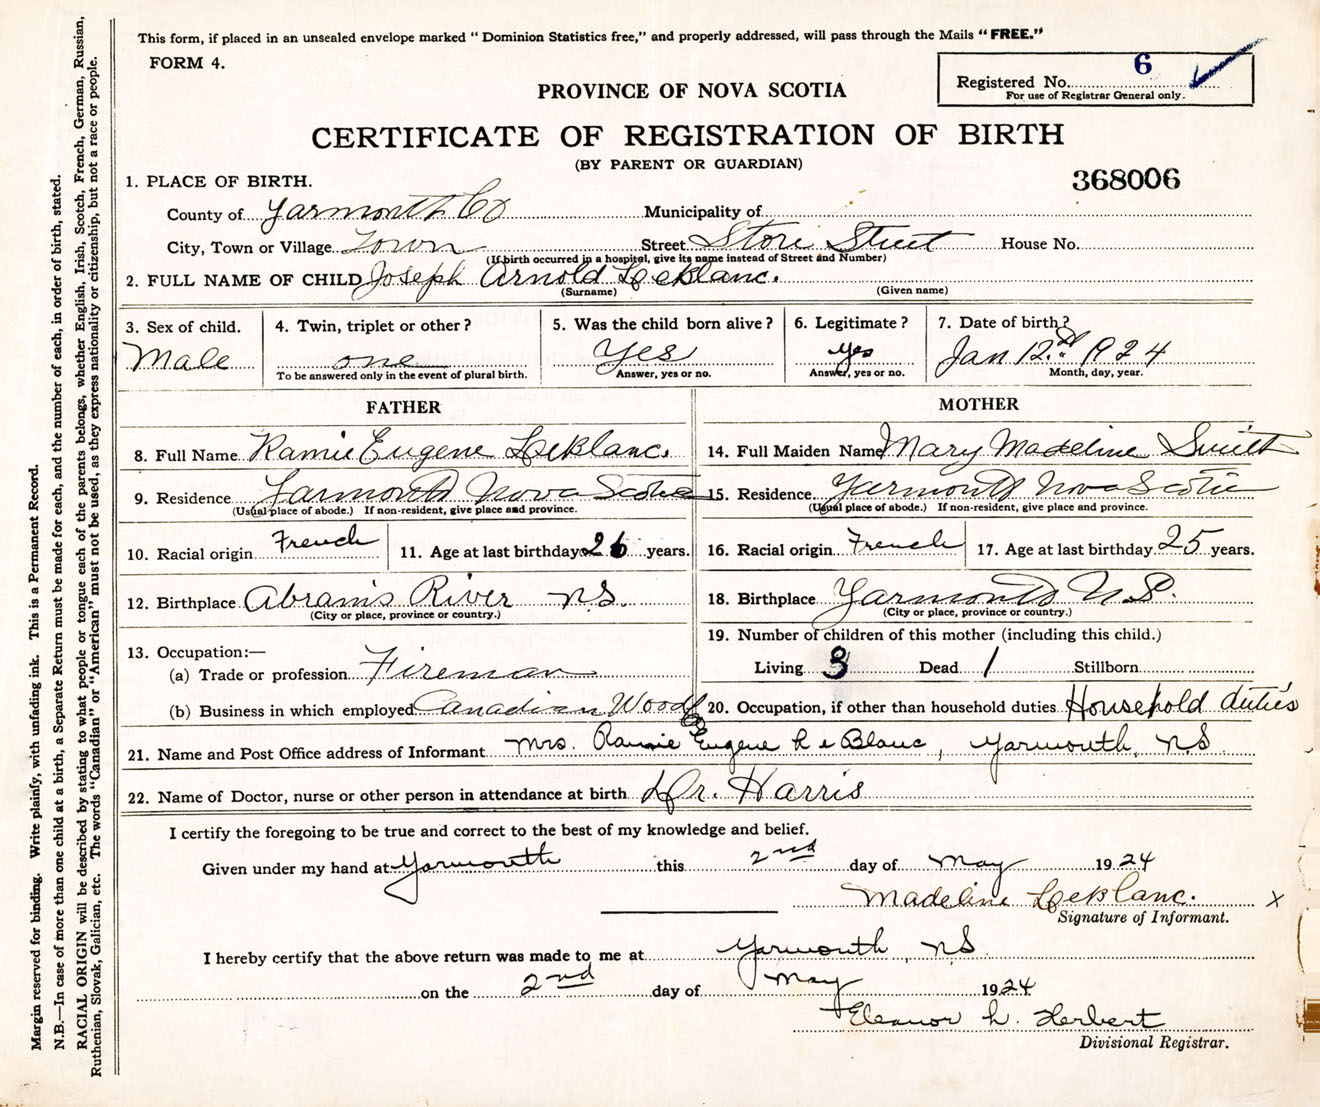 This form, if placed in an unsealed envelope marked "Dominion Statistics free," and properly addressed, will pass through the Mails "FREE."
FORM 4.
Registered No. 6
For use of Registrar General only.
PROVINCE OF NOVA SCOTIA
CERTIFICATE OF REGISTRATION OF BIRTH
(BY PARENT OR GUARDIAN)
368006
1. PLACE OF BIRTH.
County of Yarmouth Co Municipality of
City, Town or Village Town Street Store Street House No.
(If birth occurred in a hospital, give its name instead of Street and Number)
2. FULL NAME OF CHILD Joseph Arnold LeBlanc.
(Surname) (Given name)
3. Sex of child. 4. Twin, triplet or other? 5. Was the child born alive? 6. Legitimate? 7. Date of birth?
Male one Yes yes Jan 12nd 1924
To be answered only in the event of plural birth. Answer, yes or no. Answer, yes or no. Month, day, year.
FATHER MOTHER
8. Full Name Ramie Eugene LeBlanc. 14. Full Maiden Name Mary Madeline
9. Residence Yarmouth Nova Scotia 15. Residence Yarmouth Nova Scotia
(Usual place of abode.) If non-resident, give place and province. (Usual place of abode.) If non-resident, give place and province.
10. Racial origin French 11. Age at last birthday 26 years. 16. Racial origin French 17. Age at last birthday 25 years.
12. Birthplace Abram's River N.S. 18. Birthplace Yarmouth N.S.
(City or place, province or country.) (City or place, province or country.)
19. Number of children of this mother (including this child.)
13. Occupation:—
(a) Trade or profession Fireman Living 3 Dead 1 Stillborn
(b) Business in which employed Canadian Woods 20. Occupation, if other than household duties Household duties
21. Name and Post Office address of Informant Mrs. Ramie Eugene LeBlanc, Yarmouth, NS
22. Name of Doctor, nurse or other person in attendance at birth Dr. Harris
I certify the foregoing to be true and correct to the best of my knowledge and belief.
Given under my hand at Yarmouth this 2nd day of May 1924
Madeline LeBlanc. x
Signature of Informant.
I hereby certify that the above return was made to me at Yarmouth, NS
on the 2nd day of May 1924
Eleanor L. Herbert
Divisional Registrar.
Margin reserved for binding. Write plainly, with unfading ink. This is a Permanent Record.
N.B.—In case of more than one child at a birth, a Separate Return must be made for each, and the number of each, in order of birth, stated.
RACIAL ORIGIN will be described by stating to what people or tongue each of the parents belongs, whether English, Irish, Scotch, French, German, Russian,
Ruthenian, Slovak, Galician, etc. The words "Canadian" or "American" must not be used, as they express nationality or citizenship, but not a race or people.